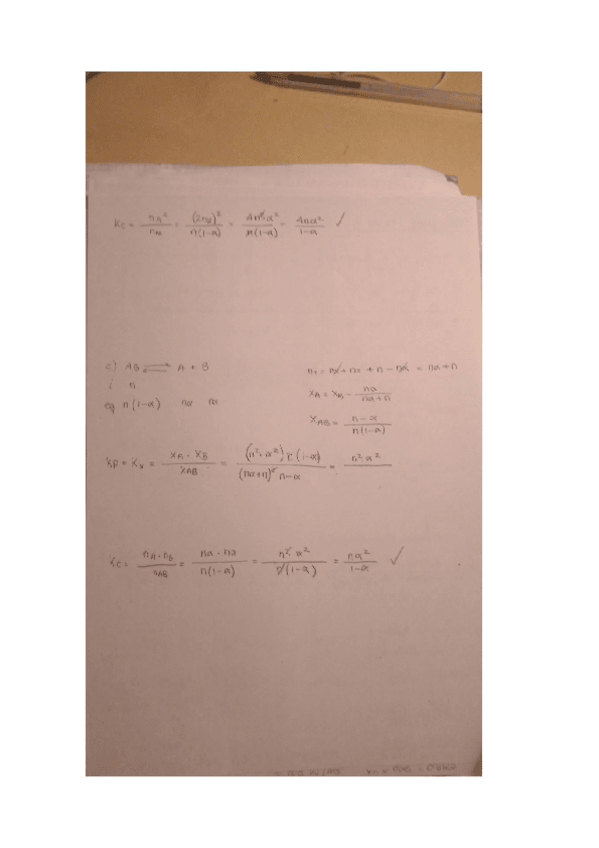 Kc = nA² / = (2nα)² / n(1-α) = 4n²α² / n(1-α) = 4nα² / 1-α ✓
c) AB ⇌ A + B
i n
eq n(1-α) nα nα
nT = nα + nα + n - nα = nα + n
XA = XB = nα / nα+n
XAB = n-α / n(1-α)
Kp = Kx = XA · XB / XAB = (n²·α²) n(1-α) / (nα+n)² n-α = n²·α²
Kc = nA · nB / nAB = nα · nα / n(1-α) = n²·α² / n(1-α) = nα² / 1-α ✓